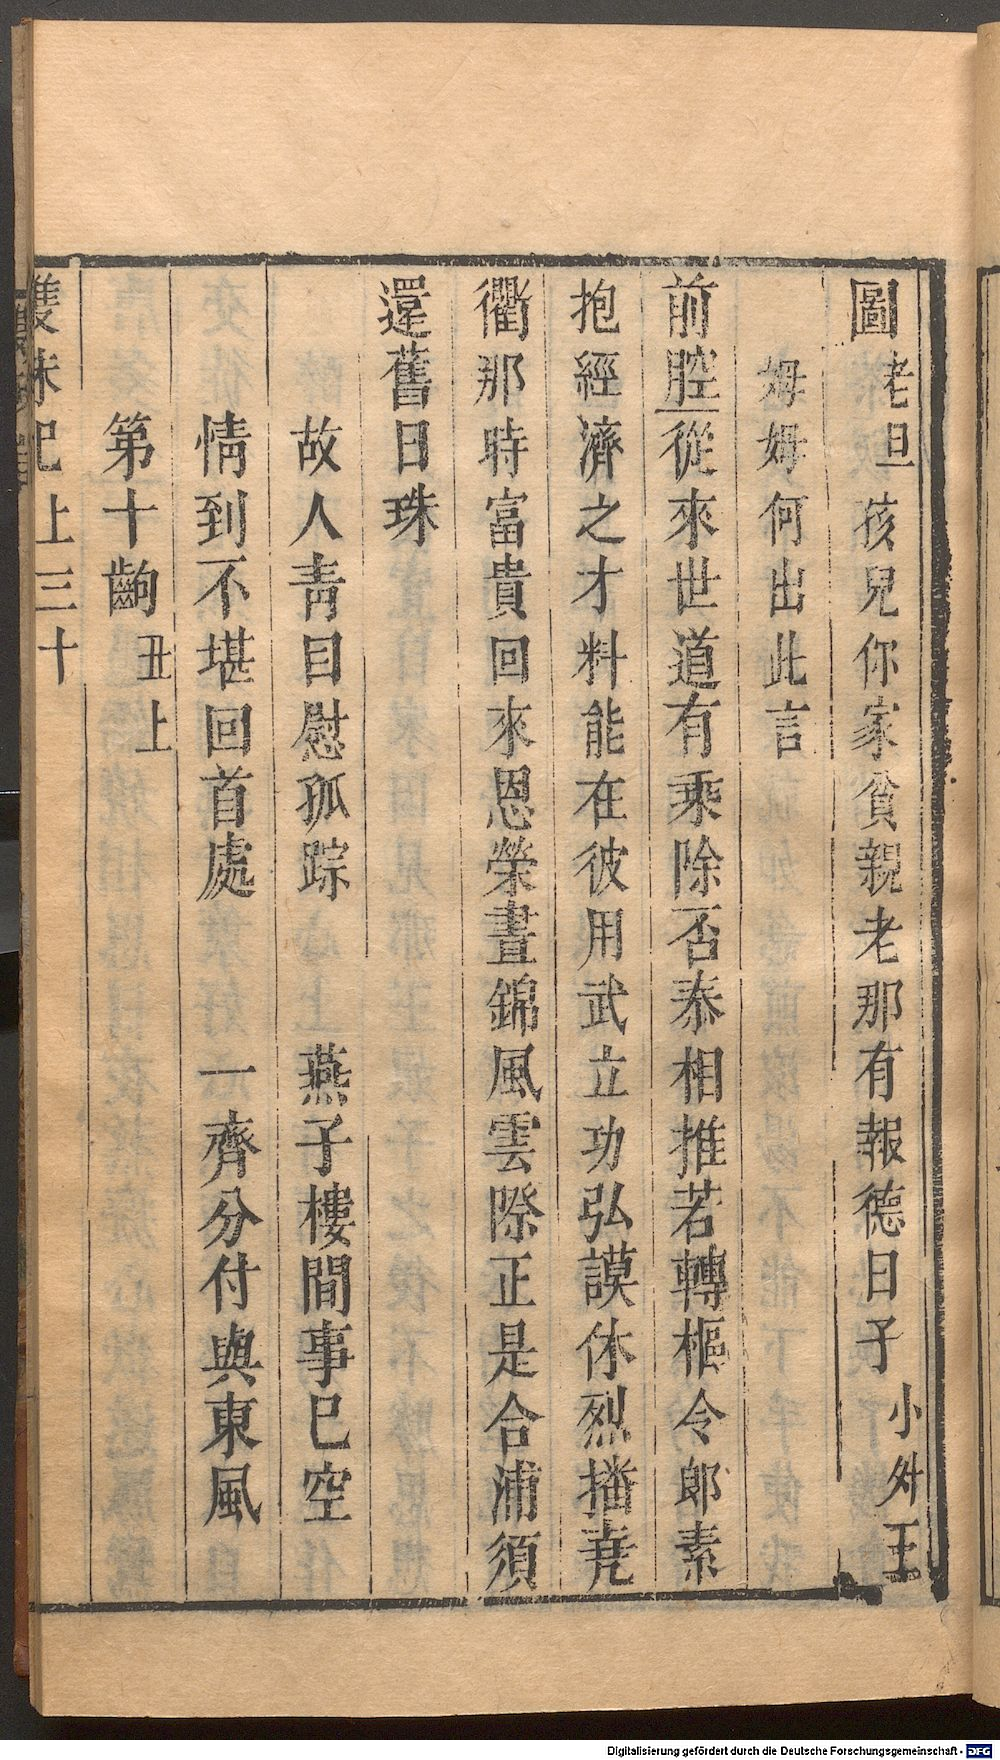 圖老旦孩兒你家貧親老那有報德日子小外王
姆姆何出此言
前腔從來世道有乘除否泰相推若轉樞令郎素
抱經濟之才料能在彼用武立功弘謨休烈播堯
衢那時富貴回來恩榮晝錦風雲際正是合浦須
還舊日珠
故人靑目慰孤踪 燕子樓間事已空
情到不堪回首處 一齊分付與東風
第十齣丑上
雙珠記上三十
Digitalisierung gefördert durch die Deutsche Forschungsgemeinschaft - DFG